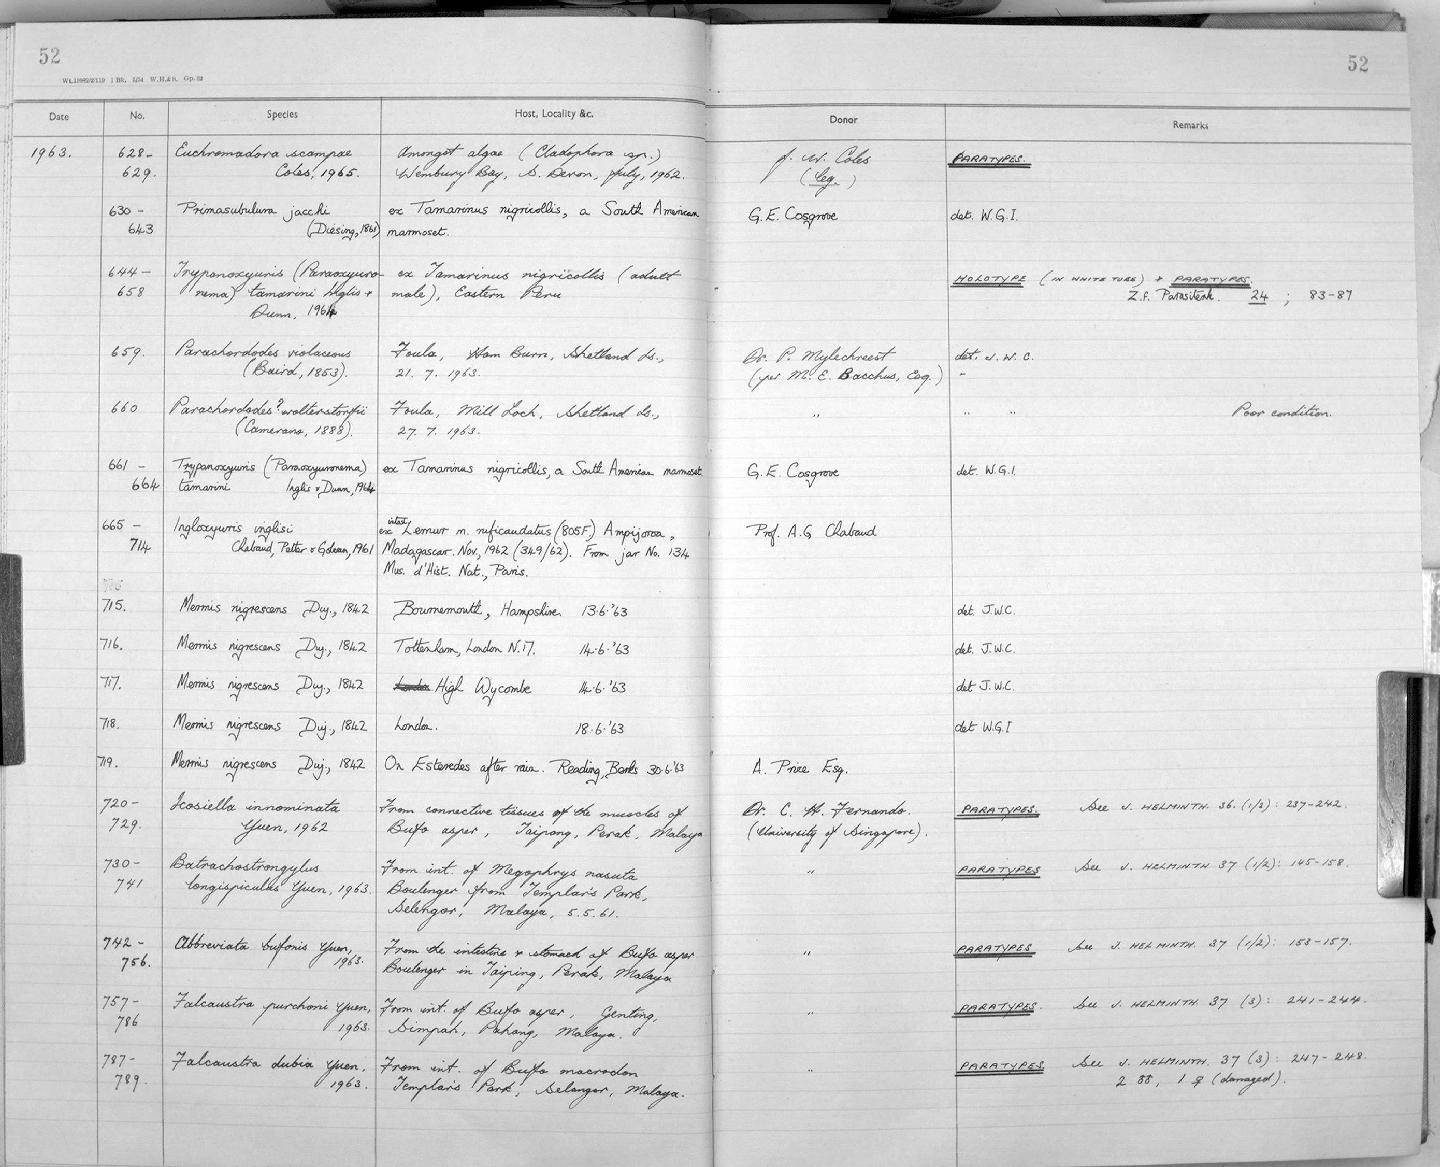 52
52
Date No. Species Host, Locality &c. Donor Remarks
1963. 628- Euchromadora scampae Amongst algae (Cladophora sp.) J. W. Coles PARATYPES.
629. Coles, 1965. Wembury Bay, S. Devon, July, 1962. (Leg.)
630 - Primasubulura jacchi ex Tamarinus nigricollis, a South American G.E. Cosgrove det. W.G.I.
643 (Diesing, 1861) marmoset.
644 - Trypanoxyuris (Paraoxyuro- ex Tamarinus nigricollis (adult HOLOTYPE (IN WHITE TUBE) + PARATYPES
658 nema) tamarini Inglis + male), Eastern Peru Z.f. Parasitenk. 24 ; 83-87
Dunn, 1964
659. Parachordodes violaceous Foula, Ham Burn, Shetland Is., Dr. P. Mylechreest det. J. W. C.
(Baird, 1853). 21. 7. 1963. (per M. E. Bacchus, Esq.) -
660 Parachordodes? wolterstorffii Foula, Mill Loch, Shetland Is., " " " Poor condition.
(Camerano, 1888). 27. 7. 1963.
661 - Trypanoxyuris (Paraoxyuronema) ex Tamarinus nigricollis, a South American marmoset G.E. Cosgrove det. W.G.I.
664 tamarini Inglis + Dunn, 1964
665 - Ingloxyuris inglisi ex Lemur m. ruficaudatus (805F) Ampijoroa, Prof. A.G Chabaud
714 Chabaud, Petter + Golvan, 1961 Madagascar. Nov, 1962 (349/62). From jar No. 134
Mus. d'Hist. Nat., Paris.
715. Mermis nigrescens Duj., 1842 Bournemouth, Hampshire 13.6.'63 det. J.W.C.
716. Mermis nigrescens Duj., 1842 Tottenham, London N.17. 14.6.'63 det. J.W.C.
717. Mermis nigrescens Duj., 1842 London High Wycombe 14.6.'63 det J.W.C.
718. Mermis nigrescens Duj, 1842 London. 18.6.'63 det W.G.I
719. Mermis nigrescens Duj, 1842 On Esteredes after rain. Reading, Berks 30.6.'63 A. Price Esq.
720- Icosiella innominata From connective tissues of the muscles of Dr. C. H. Fernando. PARATYPES. See J. HELMINTH. 36. (1/2): 237-242.
729. Yuen, 1962 Bufo asper, Taiping, Perak, Malaya (University of Singapore).
730- Batrachostrongylus From int. of Megophrys nasuta " PARATYPES See J. HELMINTH 37 (1/2): 145-158.
741 longispiculus Yuen, 1963. Boulenger from Templar's Park,
Selangor, Malaya, 5.5.61.
742- Abbreviata bufonis Yuen, From the intestine + stomach of Bufo asper " PARATYPES See J. HELMINTH. 37 (1/2): 153-157.
756. 1963. Boulenger in Taiping, Perak, Malaya
757- Falcaustra purchoni Yuen, From int. of Bufo asper, Genting, " PARATYPES. See J. HELMINTH. 37 (3): 241-244.
786 1963. Simpah, Pahang, Malaya.
787- Falcaustra dubia Yuen, From int. of Bufo macrodon " PARATYPES See J. HELMINTH. 37 (3): 247-248.
789. 1963. Templar's Park, Selangor, Malaya. 2 ♂♂, 1 ♀ (damaged).